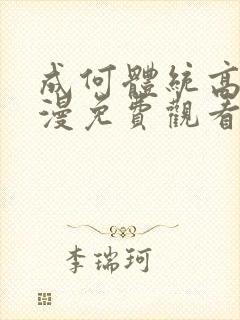 成何體統高
漫免費觀看
李瑞珂